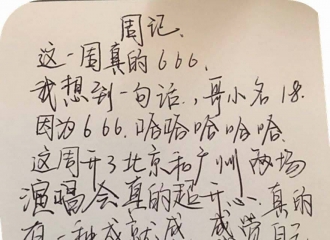 周记.
这一周真的666.
我想到一句话.,哥小名18.
因为666.哈哈哈哈哈.
这周开了北京和广州两场
演唱会真的超开心.真的
有一种成就感 感觉自己